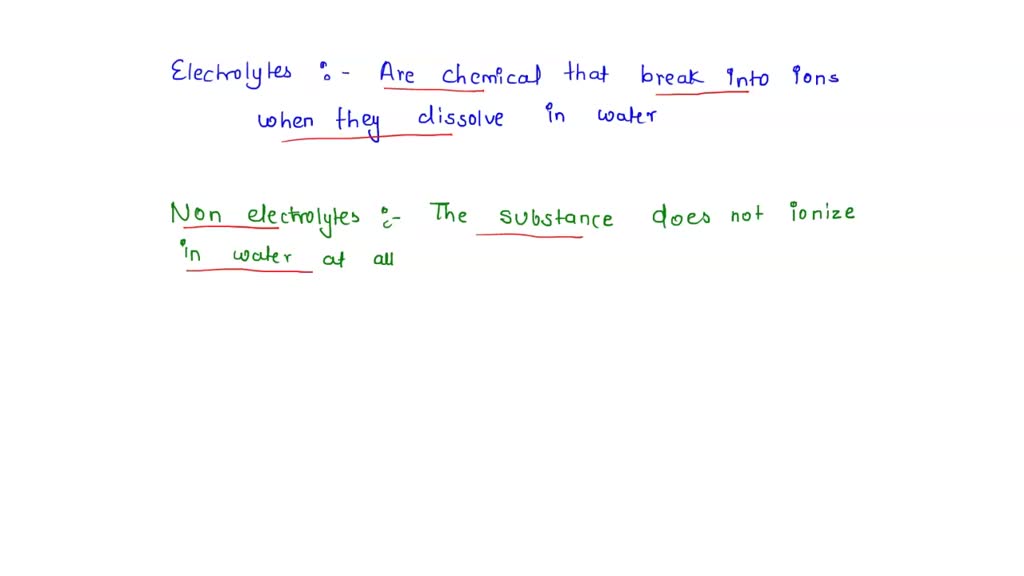 Electrolytes :- Are chemical that break into ions
when they dissolve in water
Non electrolytes :- The substance does not ionize
in water at all